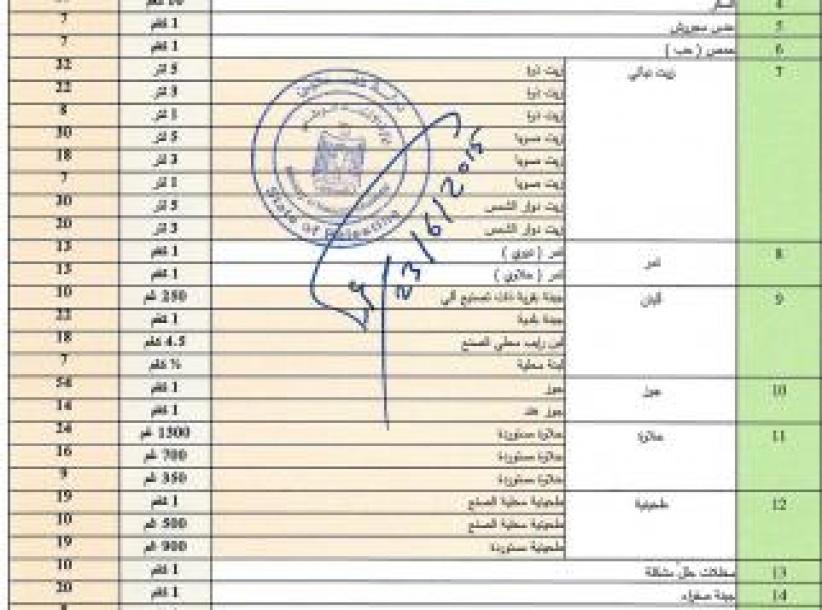 4 السكر 10 كغم
5 عدس مجروش 1 كغم 7
6 حمص ( حب ) 1 كغم 7
7 زيت نباتي زيت ذرة 5 لتر 32
زيت ذرة 3 لتر 22
زيت ذرة 1 لتر 8
زيت صويا 5 لتر 30
زيت صويا 3 لتر 18
زيت صويا 1 لتر 7
زيت دوار الشمس 5 لتر 30
زيت دوار الشمس 3 لتر 20
8 تمر تمر ( عبري ) 1 كغم 13
تمر ( حلاوي ) 1 كغم 13
9 ألبان جبنة طرية ذات تصنيع آلي 250 غم 10
جبنة بلدية 1 كغم 22
لبن رايب محلي الصنع 4.5 كغم 18
لبنة محلية ½ كغم 7
10 جوز جوز 1 كغم 54
جوز هند 1 كغم 14
11 حلاوة حلاوة مستوردة 1300 غم 24
حلاوة مستوردة 700 غم 16
حلاوة مستوردة 350 غم 9
12 طحينية طحينية محلية الصنع 1 كغم 19
طحينية محلية الصنع 500 غم 10
طحينية مستوردة 900 غم 19
13 مخللات خل مشكلة 1 كغم 10
14 جبنة صفراء 1 كغم 20
State of Palestine
23/6/2015